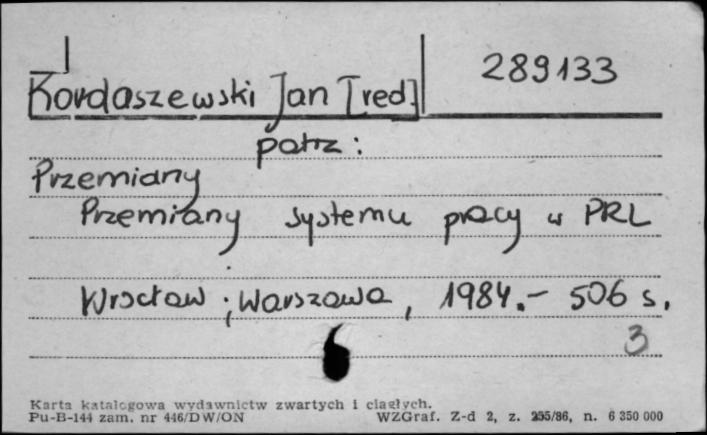 Kordaszewski Jan [red.] 289133
patrz:
Przemiany
Przemiany systemu pracy w PRL
Wrocław ; Warszawa, 1984.- 506 s.
3
Karta katalogowa wydawnictw zwartych i ciągłych.
Pu-B-144 zam. nr 446/DW/ON WZGraf. Z-d 2, z. 255/86, n. 6 350 000